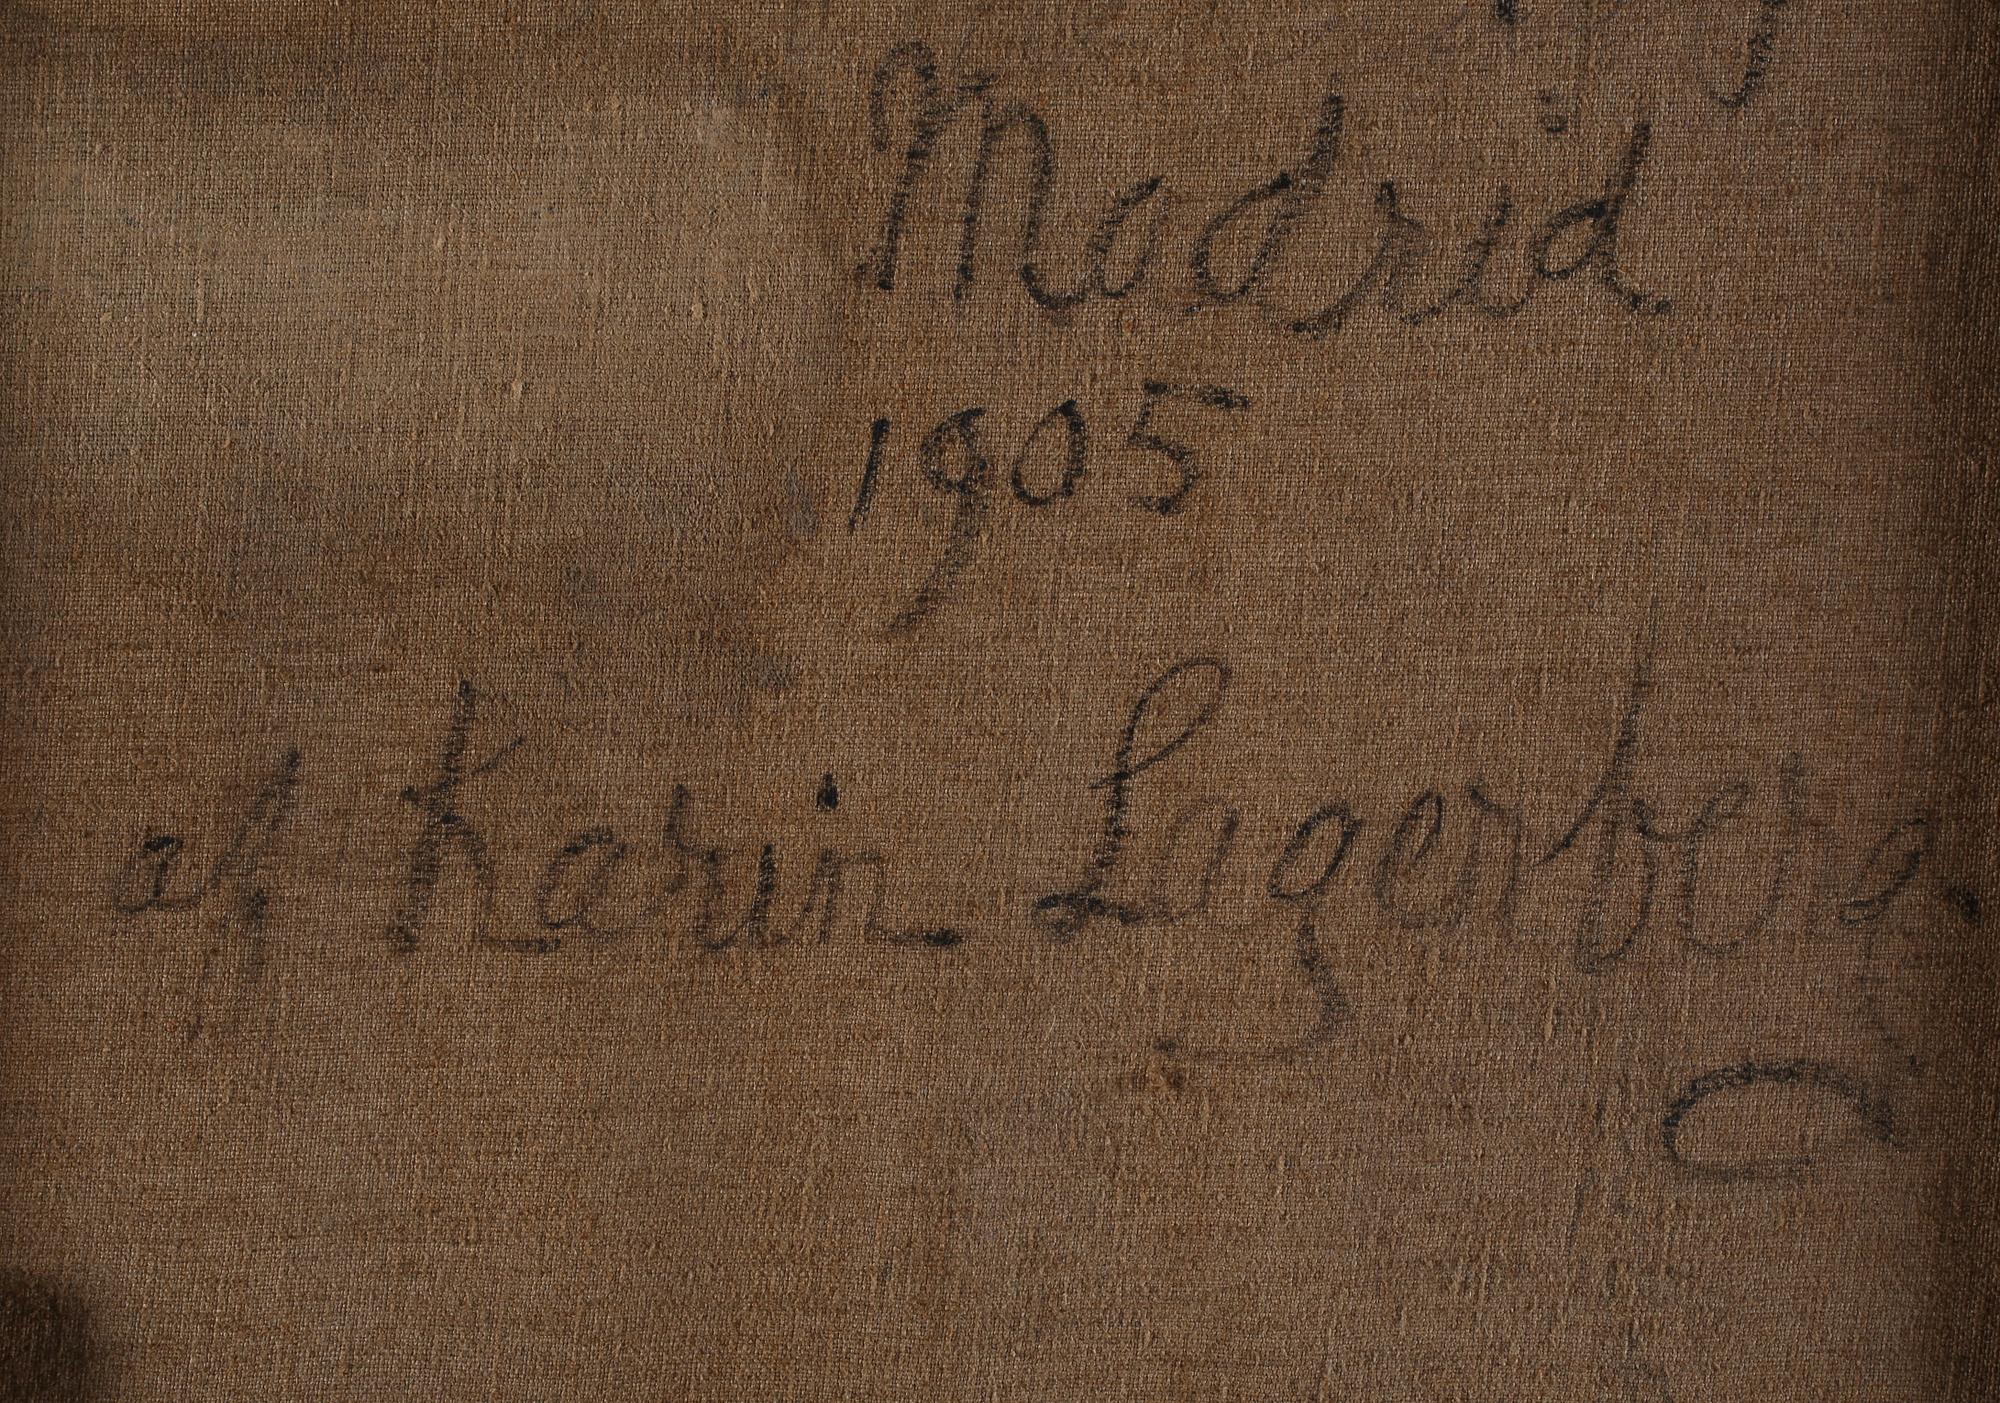 Madrid
1905
af Karin Lagerberg